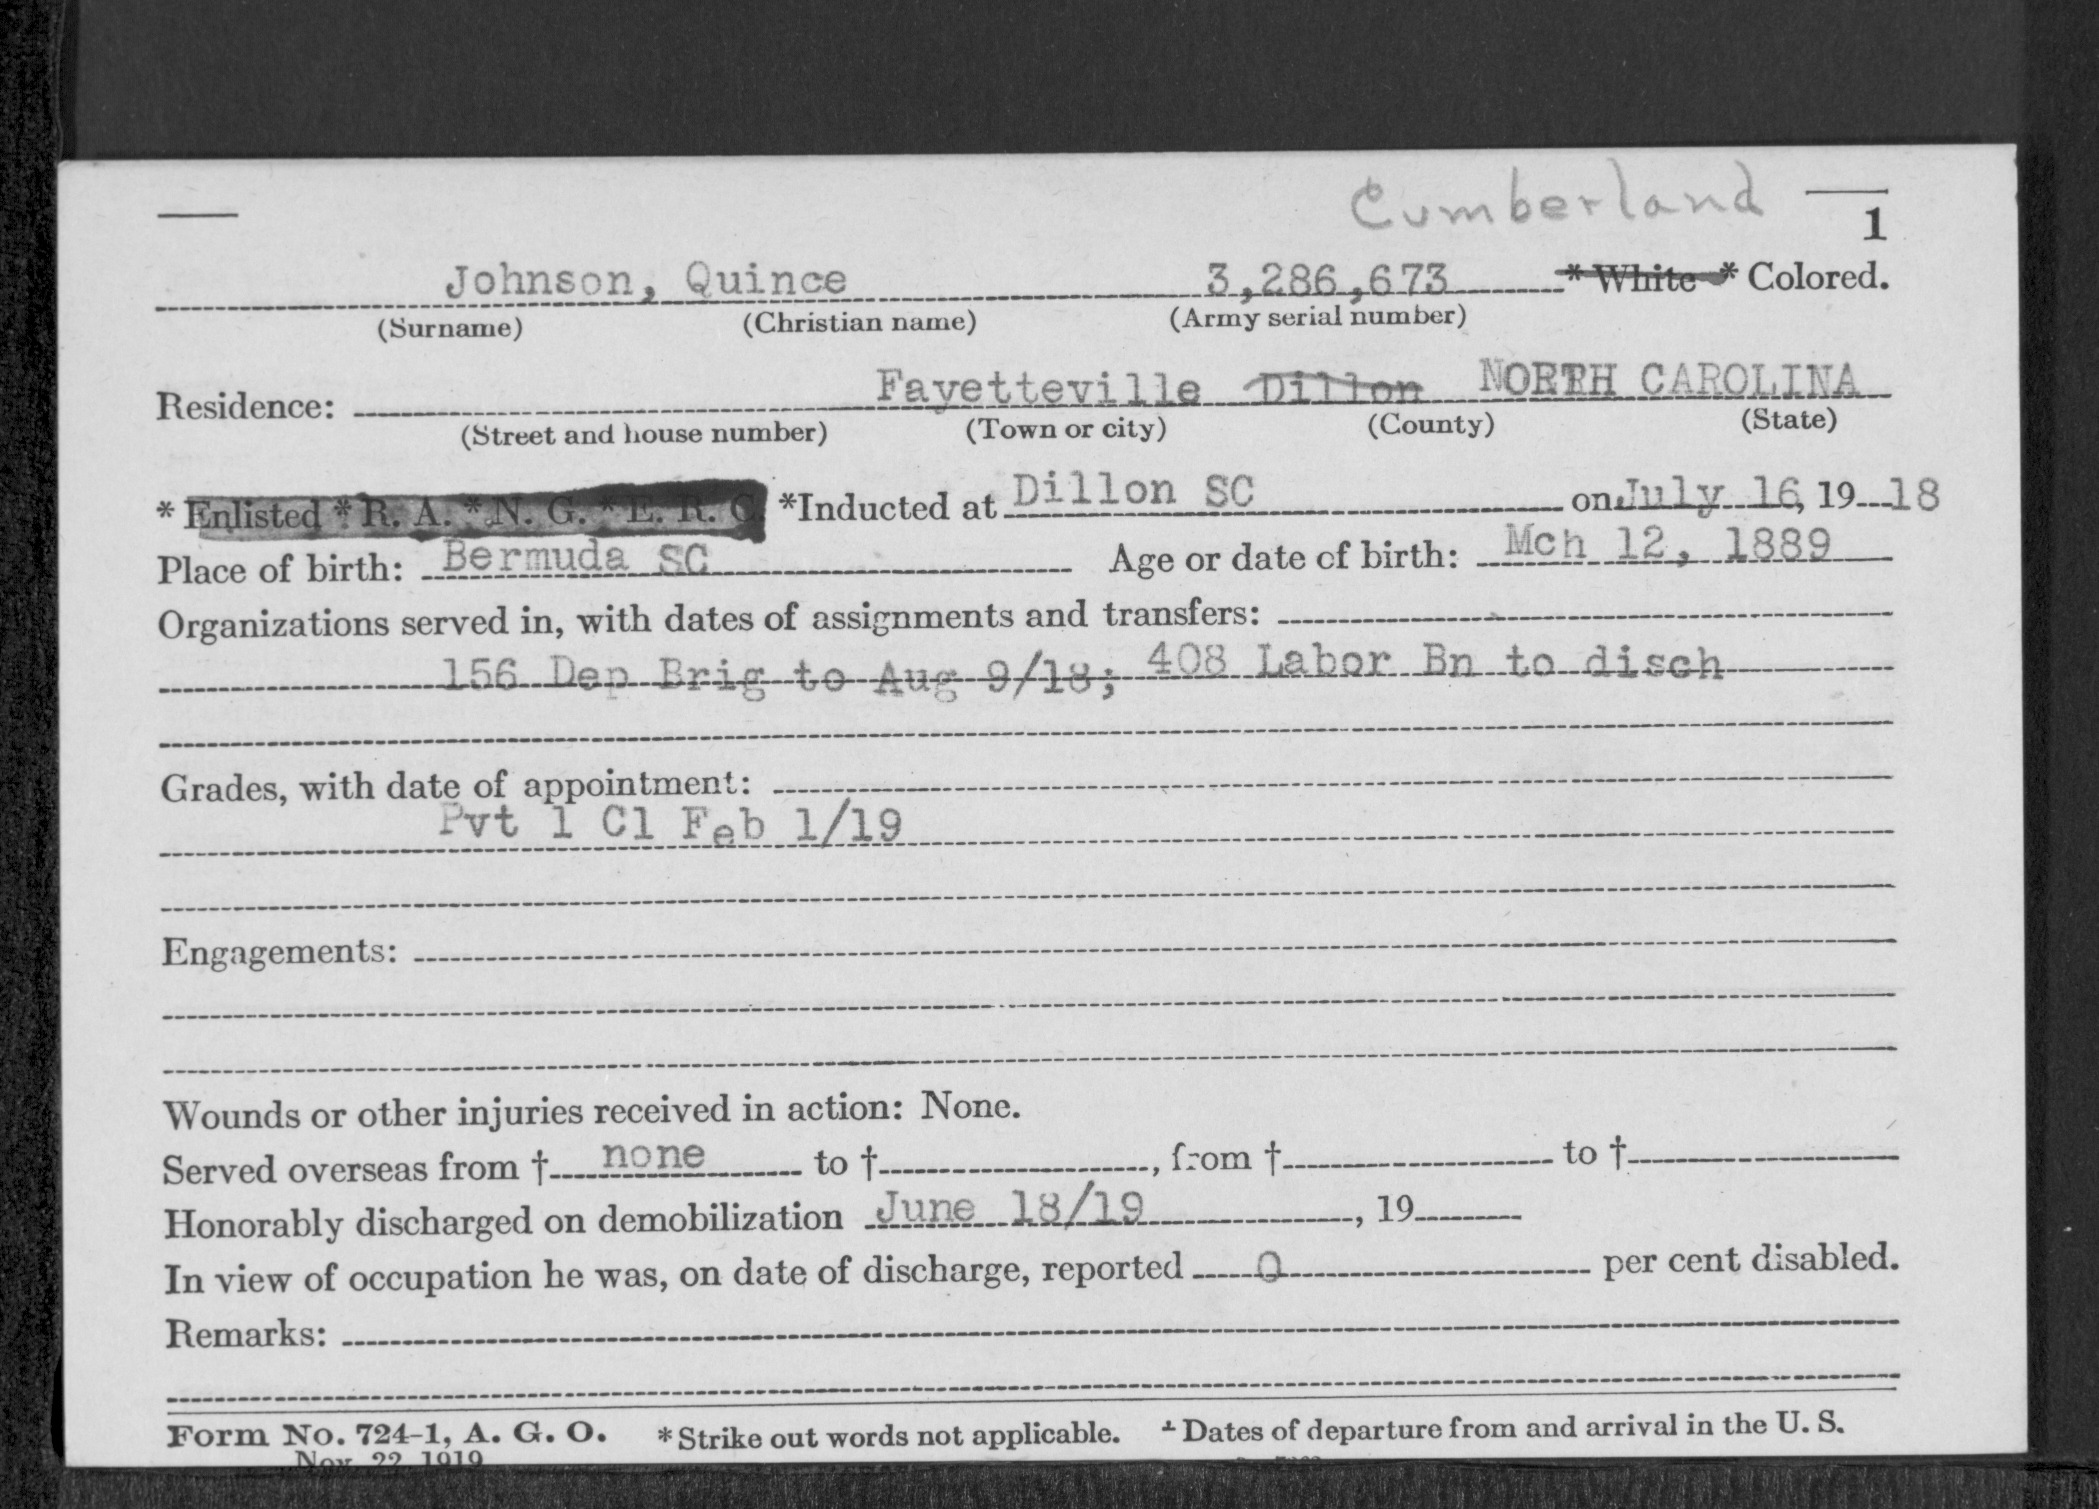 Cumberland
1
Johnson, Quince 3,286,673 * White * Colored.
(Surname) (Christian name) (Army serial number)
Residence: Fayetteville Dillon NORTH CAROLINA
(Street and house number) (Town or city) (County) (State)
* Enlisted * R. A. * N. G. * E. R. C. *Inducted at Dillon SC on July 16, 19 18
Place of birth: Bermuda SC Age or date of birth: Mch 12, 1889
Organizations served in, with dates of assignments and transfers:
156 Dep Brig to Aug 9/18; 408 Labor Bn to disch
Grades, with date of appointment:
Pvt 1 Cl Feb 1/19
Engagements:
Wounds or other injuries received in action: None.
Served overseas from † none to †, from † to †
Honorably discharged on demobilization June 18/19, 19
In view of occupation he was, on date of discharge, reported 0 per cent disabled.
Remarks:
Form No. 724-1, A. G. O. * Strike out words not applicable. † Dates of departure from and arrival in the U. S.
Nov. 22, 1919